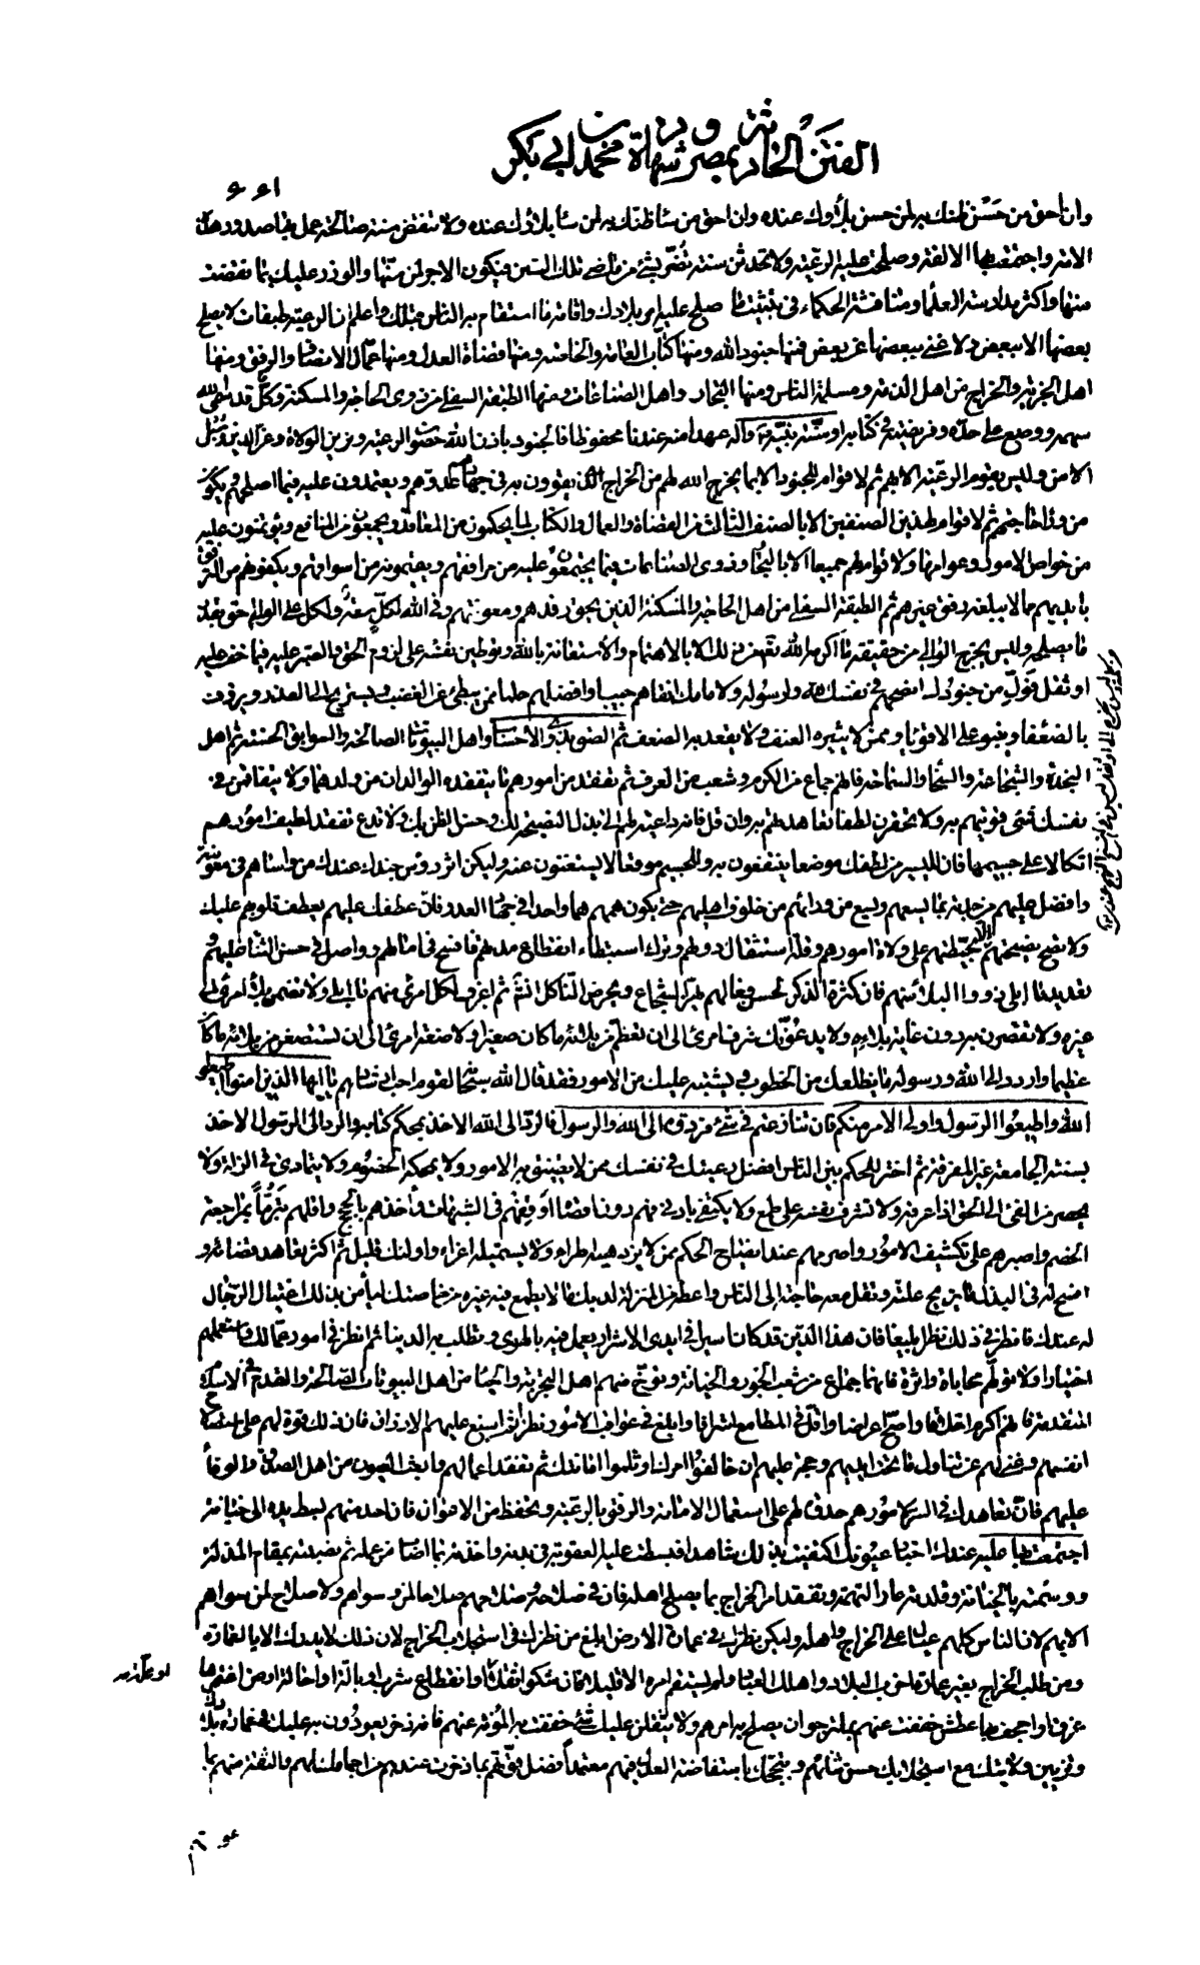 الفتن الحادثة بمصر وشهادة محمد بن ابي بكر
وان احق من حسن ظنك به لمن حسن بلاؤك عنده وان احق من ساء ظنك به لمن ساء بلاؤك عنده ولا تنقض سنة صالحة عمل بها صدور هذه
الامة واجتمعت بها الالفة وصلحت عليها الرعية ولا تحدثن سنة تضر بشيء من ماضي تلك السنن فيكون الاجر لمن سنها والوزر عليك بما نقضت
منها واكثر مدارسة العلماء ومنافثة الحكماء في تثبيت ما صلح عليه امر بلادك واقامة ما استقام به الناس قبلك واعلم ان الرعية طبقات لا يصلح
بعضها الا ببعض ولا غنى ببعضها عن بعض فمنها جنود الله ومنها كتاب العامة والخاصة ومنها قضاة العدل ومنها عمال الانصاف والرفق ومنها
اهل الجزية والخراج من اهل الذمة ومسلمة الناس ومنها التجار واهل الصناعات ومنها الطبقة السفلى من ذوي الحاجة والمسكنة وكل قد سمى الله
سهمه ووضع على حده وفريضته في كتابه او سنة نبيه وآله عهدا منه عندنا محفوظا فالجنود باذن الله حصون الرعية وزين الولاة وعز الدين وسبل
الامن وليس يقوم الرعية الا بهم ثم لا قوام للجنود الا بما يخرج الله لهم من الخراج الذي يقوون به في جهاد عدوهم ويعتمدون عليه فيما اصلحهم ويكون
من وراء حاجتهم ثم لا قوام لهذين الصنفين الا بالصنف الثالث من القضاة والعمال والكتاب لما يحكمون من المعاقد ويجمعون من المنافع ويؤتمنون عليه
من خواص الامور وعوامها ولا قوام لهم جميعا الا بالتجار وذوي الصناعات فيما يجتمعون عليه من مرافقهم ويقيمونه من اسواقهم ويكفونهم من الترفق
بايديهم مما لا يبلغه رفق غيرهم ثم الطبقة السفلى من اهل الحاجة والمسكنة الذين يحق رفدهم ومعونتهم وفي الله لكل سعة ولكل على الوالي حق بقدر
ما يصلحه وليس يخرج الوالي من حقيقة ما الزمه الله تعالى من ذلك الا بالاهتمام والاستعانة بالله وتوطين نفسه على لزوم الحق والصبر عليه فيما خف عليه
او ثقل فول من جنودك انصحهم في نفسك لله ولرسوله ولامامك انقاهم جيبا وافضلهم حلما ممن يبطئ عن الغضب ويستريح الى العذر ويرؤف
بالضعفاء وينبو على الاقوياء وممن لا يثيره العنف ولا يقعد به الضعف ثم الصق بذوي الاحساب واهل البيوتات الصالحة والسوابق الحسنة ثم اهل
النجدة والشجاعة والسخاء والسماحة فانهم جماع من الكرم وشعب من العرف ثم تفقد من امورهم ما يتفقده الوالدان من ولدهما ولا يتفاقمن في
نفسك شيء قويتهم به ولا تحقرن لطفا تعاهدتهم به وان قل فانه داعية لهم الى بذل النصيحة لك وحسن الظن بك ولا تدع تفقد لطيف امورهم
اتكالا على جسيمها فان لليسير من لطفك موضعا ينتفعون به وللجسيم موقعا لا يستغنون عنه وليكن اثر رؤس جندك عندك من واساهم في معونته
وافضل عليهم من جدته بما يسعهم ويسع من ورائهم من خلوف اهليهم حتى يكون همهم هما واحدا في جهاد العدو فان عطفك عليهم يعطف قلوبهم عليك
ولا تصح نصيحتهم الا بحيطتهم على ولاة امورهم وقلة استثقال دولهم وترك استبطاء انقطاع مدتهم فافسح في امالهم وواصل في حسن الثناء عليهم
وتعديد ما ابلى ذووا البلاء منهم فان كثرة الذكر لحسن فعالهم تهز الشجاع وتحرض الناكل انشاء ثم اعرف لكل امرئ منهم ما ابلى ولا تضمن بلاء امرئ الى
غيره ولا تقصرن به دون غاية بلائه ولا يدعونك شرف امرئ الى ان تعظم من بلائه ما كان صغيرا ولا ضعة امرئ الى ان تستصغر من بلائه ما كان
عظيما واردد الى الله ورسوله ما يظلعك من الخطوب ويشتبه عليك من الامور فقد قال الله سبحانه لقوم احب ارشادهم يا ايها الذين امنوا اطيعوا
الله واطيعوا الرسول واولي الامر منكم فان تنازعتم في شيء فردوه الى الله والرسول فالرد الى الله الاخذ بمحكم كتابه والرد الى الرسول الاخذ
بسنته الجامعة غير المفرقة ثم اختر للحكم بين الناس افضل رعيتك في نفسك ممن لا تضيق به الامور ولا تمحكه الخصوم ولا يتمادى في الزلة ولا
يحصر من الفيء الى الحق اذا عرفه ولا تشرف نفسه على طمع ولا يكتفي بادنى فهم دون اقصاه اوقفهم في الشبهات وآخذهم بالحجج واقلهم تبرما بمراجعة
الخصم واصبرهم على تكشف الامور واصرمهم عند ايضاح الحكم ممن لا يزدهيه اطراء ولا يستميله اغراء واولئك قليل ثم اكثر تعاهد قضائه و
افسح له في البذل ما يزيح علته وتقل معه حاجته الى الناس واعطه من المنزلة لديك ما لا يطمع فيه غيره من خاصتك ليأمن بذلك اغتيال الرجال
له عندك فانظر في ذلك نظرا بليغا فان هذا الدين قد كان اسيرا في ايدي الاشرار يعمل فيه بالهوى وتطلب به الدنيا ثم انظر في امور عمالك فاستعملهم
اختبارا ولا تولهم محاباة واثرة فانهما جماع من شعب الجور والخيانة وتوخ منهم اهل التجربة والحياء من اهل البيوتات الصالحة والقدم في الاسلام
المتقدمة فانهم اكرم اخلاقا واصح اعراضا واقل في المطامع اشرافا وابلغ في عواقب الامور نظرا ثم اسبغ عليهم الارزاق فان ذلك قوة لهم على استصلاح
انفسهم وغنى لهم عن تناول ما تحت ايديهم وحجة عليهم ان خالفوا امرك او ثلموا امانتك ثم تفقد اعمالهم وابعث العيون من اهل الصدق والوفاء
عليهم فان تعاهدك في السر لامورهم حدوة لهم على استعمال الامانة والرفق بالرعية وتحفظ من الاعوان فان احد منهم بسط يده الى خيانة
اجتمعت بها عليه عندك اخبار عيونك اكتفيت بذلك شاهدا فبسطت عليه العقوبة في بدنه واخذته بما اصاب من عمله ثم نصبته بمقام المذلة
ووسمته بالخيانة وقلدته عار التهمة وتفقد امر الخراج بما يصلح اهله فان في صلاحه وصلاحهم صلاحا لمن سواهم ولا صلاح لمن سواهم
الا بهم لان الناس كلهم عيال على الخراج واهله وليكن نظرك في عمارة الارض ابلغ من نظرك في استجلاب الخراج لان ذلك لا يدرك الا بالعمارة
ومن طلب الخراج بغير عمارة اخرب البلاد واهلك العباد ولم يستقم امره الا قليلا فان شكوا ثقلا او علة او انقطاع شرب او بالة او احالة ارض اغتمرها
غرق او اجحف بها عطش خففت عنهم بما ترجو ان يصلح به امرهم ولا يثقلن عليك شيء خففت به المؤنة عنهم فانه ذخر يعودون به عليك في عمارة بلادك
وتزيين ولايتك مع استجلابك حسن ثنائهم وتبجحك باستفاضة العدل فيهم معتمدا فضل قوتهم بما ذخرت عندهم من اجمامك لهم والثقة منهم بما